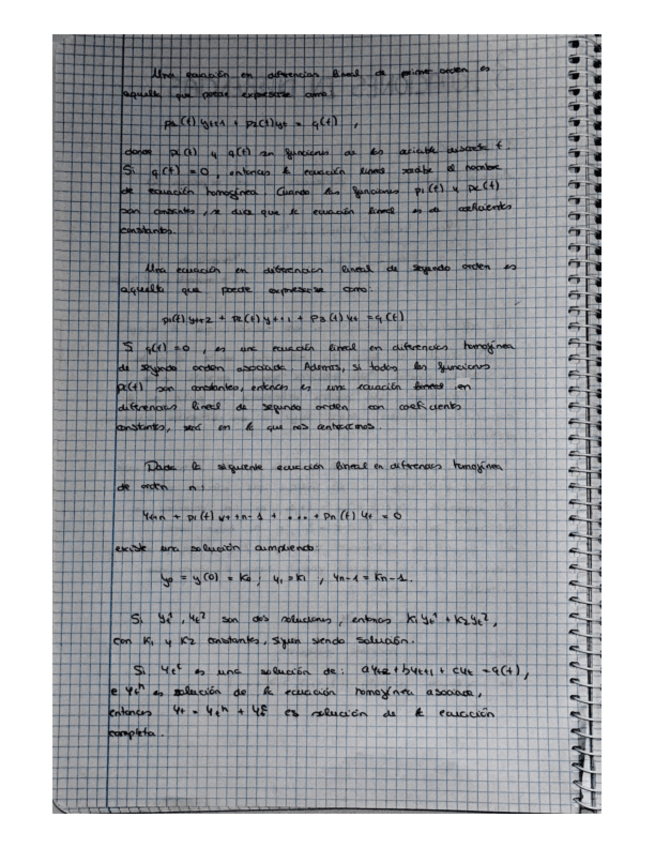 Una ecuación en diferencias lineal de primer orden es
aquella que puede expresarse como:
p1(t) yt+1 + p2(t)yt = q(t) ,
donde pi(t) y q(t) son funciones de la variable discreta t.
Si q(t) = 0, entonces la ecuación lineal recibe el nombre
de ecuación homogénea. Cuando las funciones p1(t) y p2(t)
son constantes, se dice que la ecuación lineal es de coeficientes
constantes.
Una ecuación en diferencias lineal de segundo orden es
aquella que puede expresarse como:
p1(t) yt+2 + p2(t) yt+1 + p3(t) yt = q(t)
Si q(t) = 0, es una ecuación lineal en diferencias homogénea
de segundo orden asociada. Además, si todas las funciones
pi(t) son constantes, entonces es una ecuación lineal en
diferencias lineal de segundo orden con coeficientes
constantes, será en la que nos centraremos.
Dada la siguiente ecuación lineal en diferencias homogénea
de orden n:
yt+n + p1(t) yt+n-1 + ... + pn(t) yt = 0
existe una solución cumpliendo
y0 = y(0) = k0; y1 = k1 , yn-1 = kn-1.
Si yt¹, yt² son dos soluciones, entonces k1 yt¹ + k2 yt²,
con k1 y k2 constantes, siguen siendo solución.
Si yt es una solución de: ayt+2 + byt+1 + cyt = q(t),
e ytʰ es solución de la ecuación homogénea asociada,
entonces yt = ytʰ + yt es solución de la ecuación
completa.